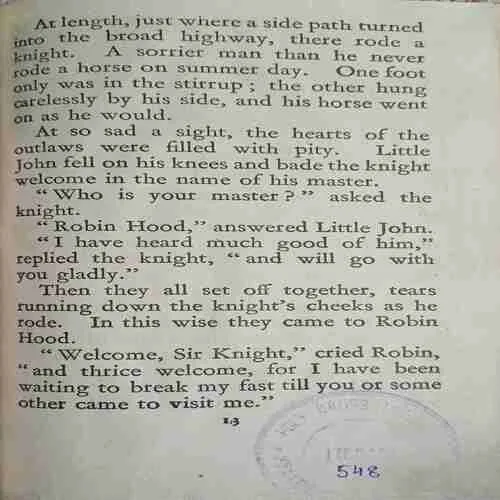 At length, just where a side path turned
into the broad highway, there rode a
knight. A sorrier man than he never
rode a horse on summer day. One foot
only was in the stirrup ; the other hung
carelessly by his side, and his horse went
on as he would.
At so sad a sight, the hearts of the
outlaws were filled with pity. Little
John fell on his knees and bade the knight
welcome in the name of his master.
“ Who is your master ? ” asked the
knight.
“ Robin Hood,” answered Little John.
“ I have heard much good of him,”
replied the knight, “ and will go with
you gladly.”
Then they all set off together, tears
running down the knight's cheeks as he
rode. In this wise they came to Robin
Hood.
“ Welcome, Sir Knight,” cried Robin,
“ and thrice welcome, for I have been
waiting to break my fast till you or some
other came to visit me.”
13
548